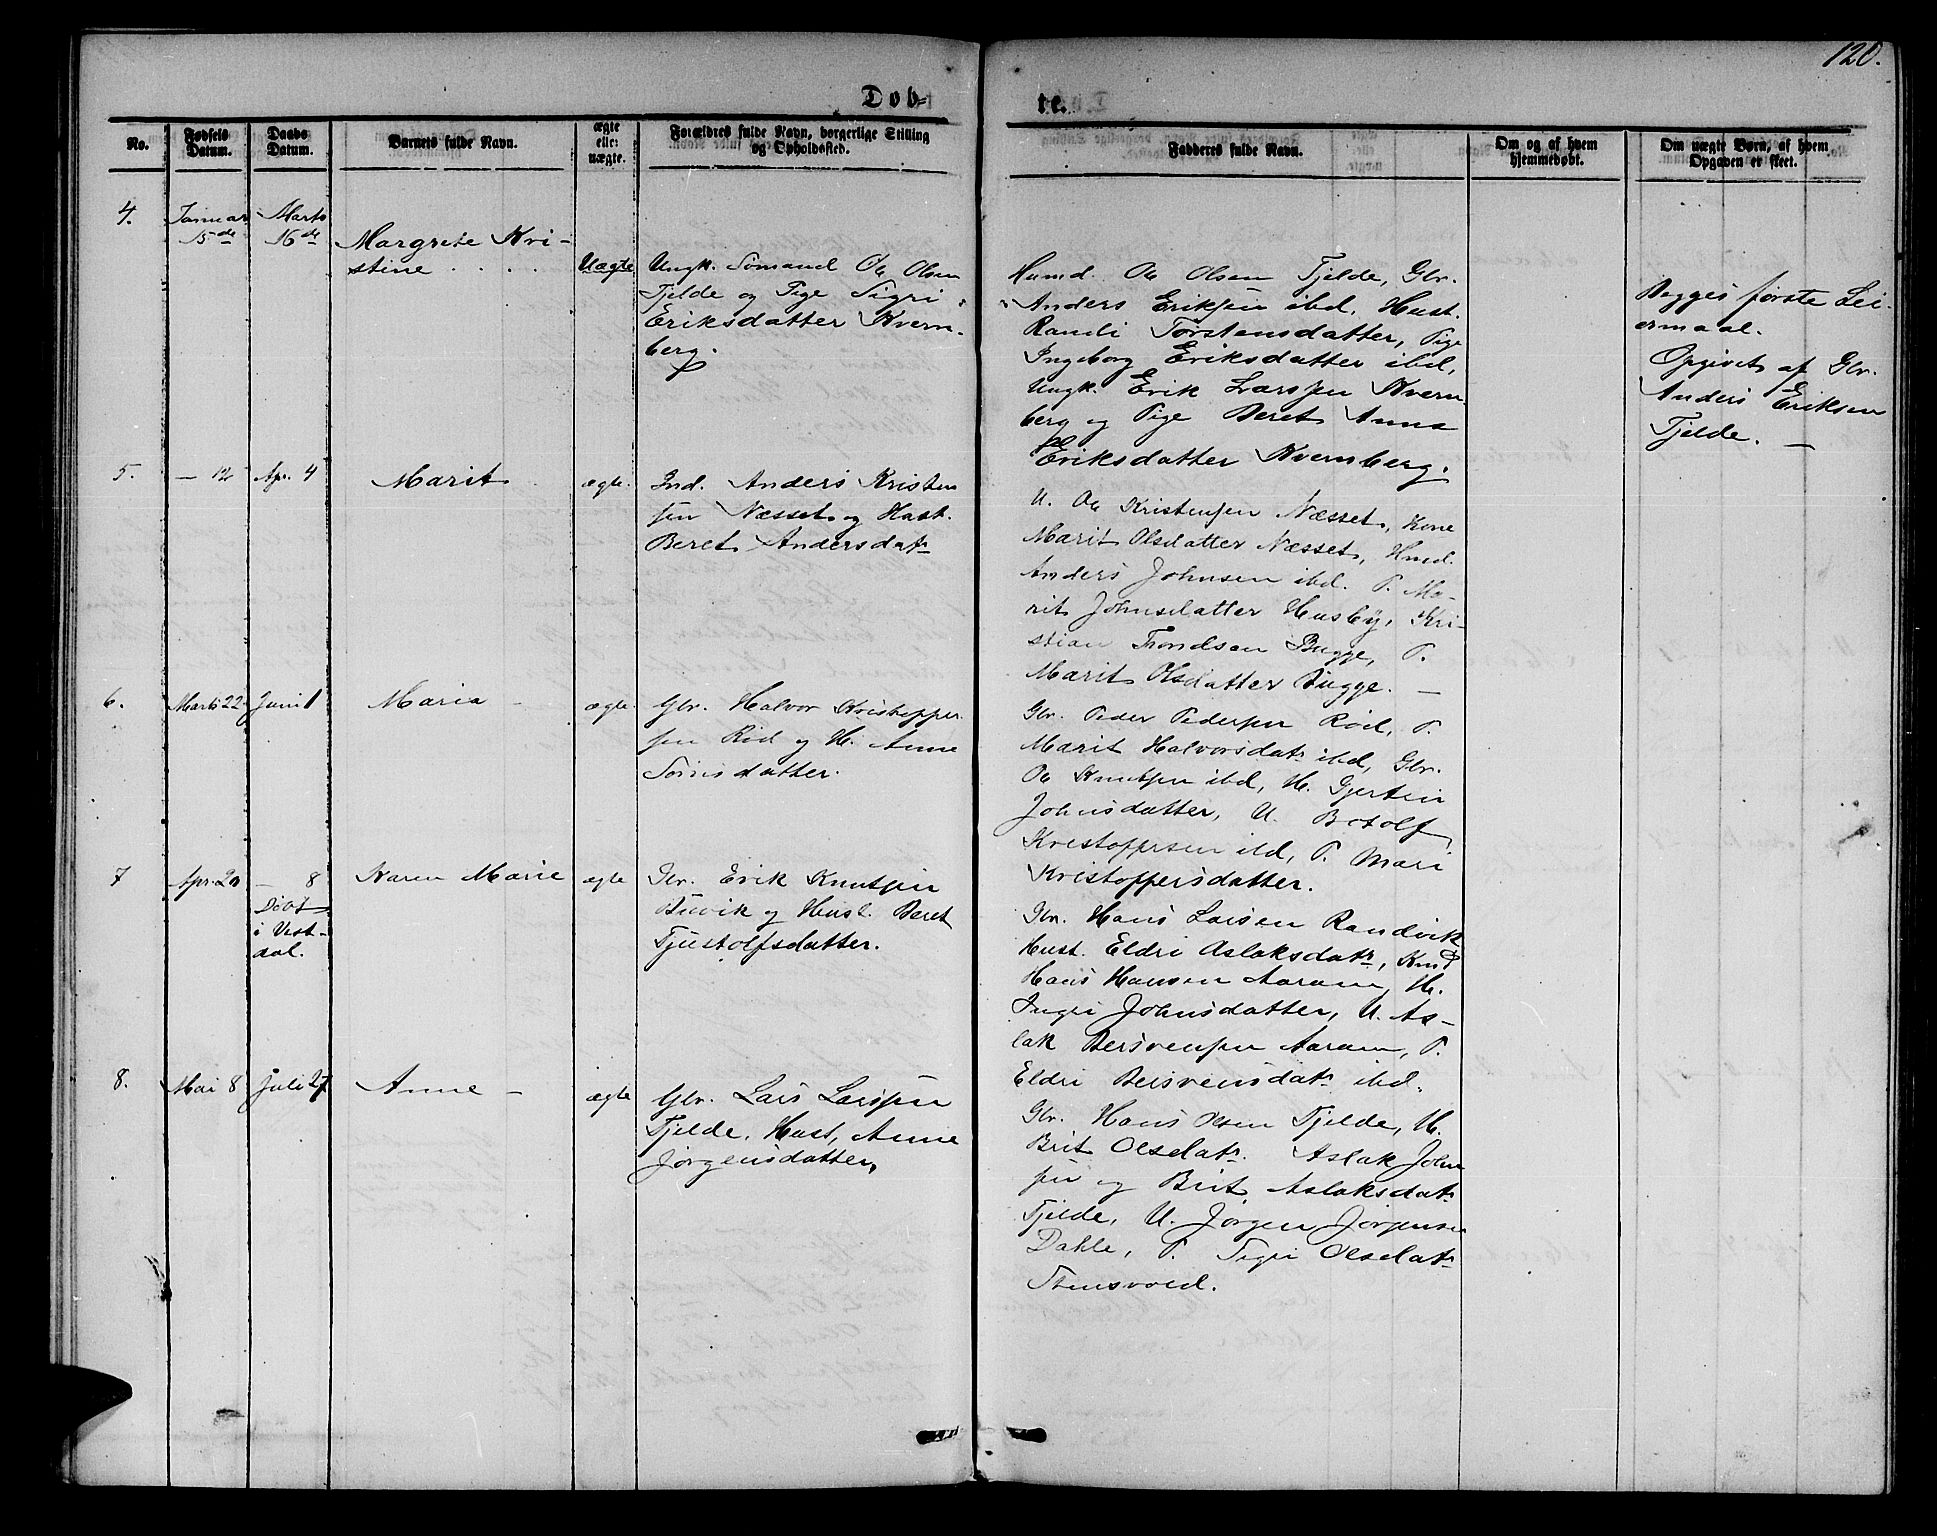 120.
Døb-
te.
No.
Fødsels Datum.
Daabs Datum.
Barnets fulde Navn.
ægte eller uægte.
Forældres fulde Navn, borgerlige Stilling og Opholdssted.
Fadderes fulde Navn.
Om og af hvem hjemmedøbt.
Om uægte Børn, af hvem Opgaven er skeet.
4.
Januar
15de
Marts
16de
Margrete Kri-
stine . . . .
Uægte
Ungk. Sømand Ole Olsen
Tjelde og Pige Sigri
Eriksdatter Kvern-
berg.
Husmd. Ole Olsen Tjelde, Gbr.
Anders Eriksen ibd. Hust.
Randi Torstensdatter, Pige
Ingeborg Eriksdatter ibd,
Ungk. Erik Larssen Kvern-
berg og Pige Beret Anna
Eriksdatter Kvernberg.
Begges første Lei-
ermaal.
Opgivet af Gbr.
Anders Eriksen
Tjelde. —
5.
— 12
Apr. 4
Marit
ægte.
Ind. Anders Kristen
sen Næsset og Hust.
Beret Andersdatr
U. Ole Kristensen Næsset, Kone
Marit Olsdatter Næsset, Hmd.
Anders Johnsen ibd. P. Ma-
rit Johnsdatter Husby, Kri-
stian Trondsen Bugge, P.
Marit Olsdatter Bugge. —
6.
Marts 22
Juni 1
Maria
ægte.
Gbr. Halvor Kristoffer
sen Rød og H. Anne
Tønisdatter.
Gbr. Peder Pedersen Rød, P.
Marit Halvorsdatr ibd, Gbr.
Ole Knutsen ibd, H. Gjertin
Johnsdatter, U. Botolf
Kristoffersen ibd, P. Mari
Kristoffersdatter.
7
Apr. 20
— 8
Døbt
i Vest-
dal.
Karen Marie
ægte
Gbr. Erik Knutsen
Buvik og Hust. Beret
Tjustolfsdatter.
Gbr. Hans Larsen Randvik
Hust. Eldri Aslaksdatr,
Hans Hansen Aaram, H.
Ingri Johnsdatter, U. As-
lak Bersvensen Aaram, P.
Eldri Bersvensdatr ibd.
8.
Mai 8
Juli 27
Anne
ægte
Gbr. Lars Larssen
Tjelde, Hust, Anne
Jørgensdatter,
Gbr. Hans Olsen Tjelde, H.
Brit Olsdatr. Aslak John
sen og Brit Aslaksdatr
Tjelde, U. Jørgen Jørgensen
Dahle, P. Sigri Olsdatr
Stensvold.